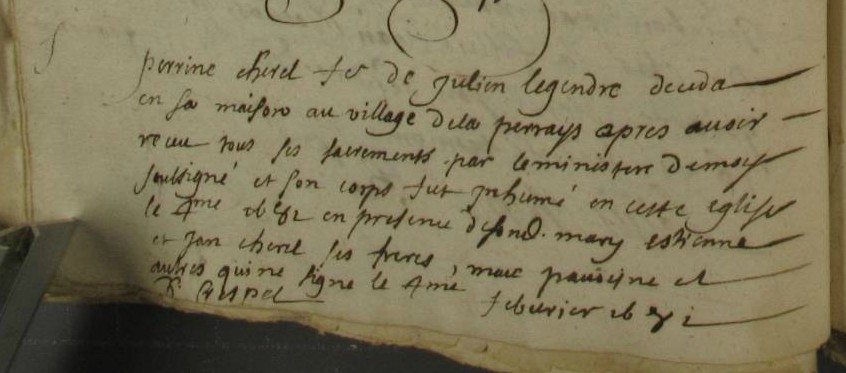 perrine cherel fe de Julien legendre deceda
en sa maison au village dela perrays apres auoir
receu tous ses sacrements par leministere demoy
soulsigné et son corps fut inhumé en cette eglise
le 4me en presence de sond. mary estienne
et Jan cherel ses freres, marc et
autres qui ne signe le 4me
feburier